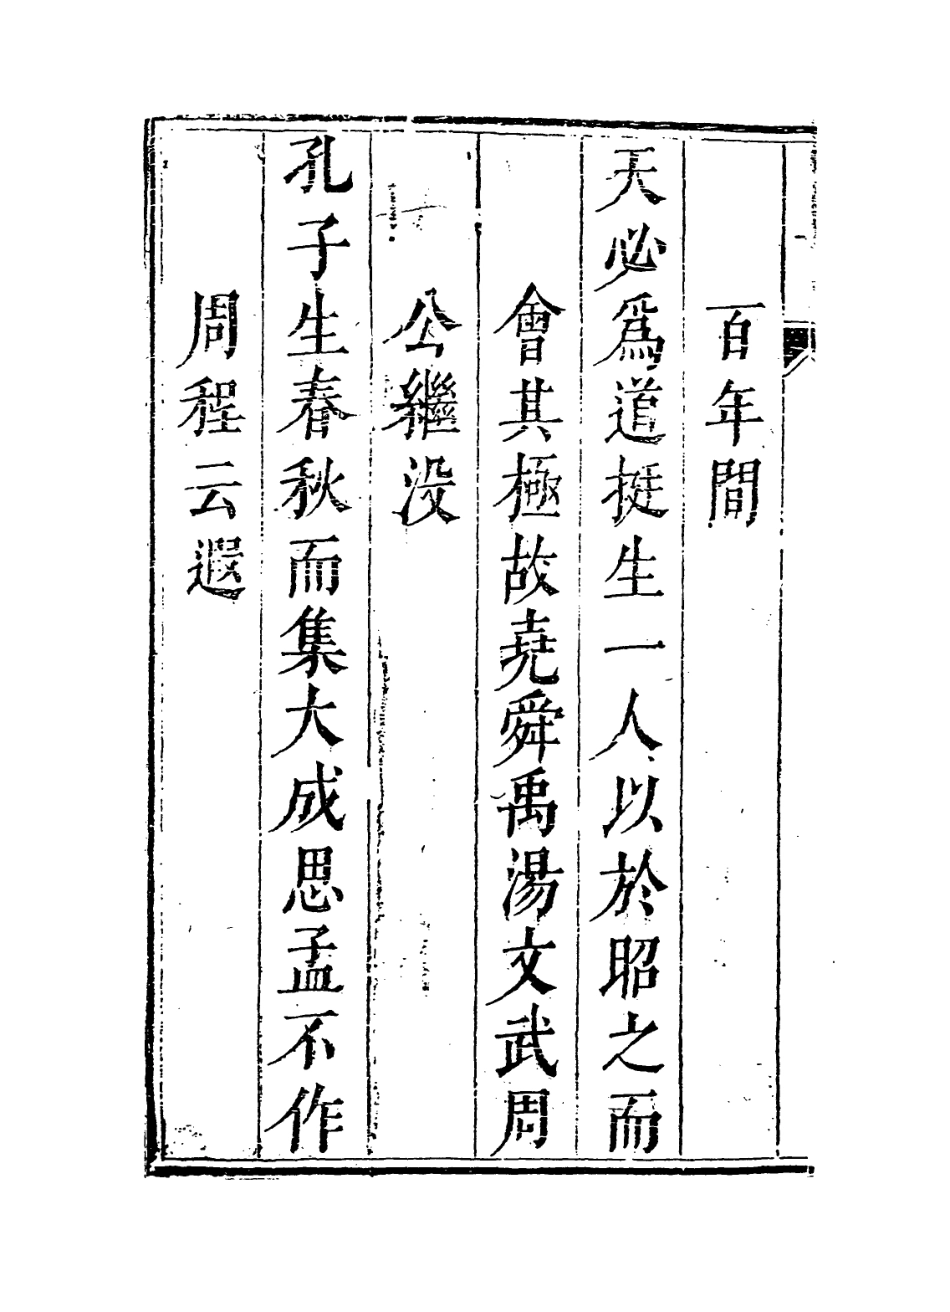 百年間
天必爲道挺生一人以於昭之而
會其極故堯舜禹湯文武周
公繼没
孔子生春秋而集大成思孟不作
周程云遐